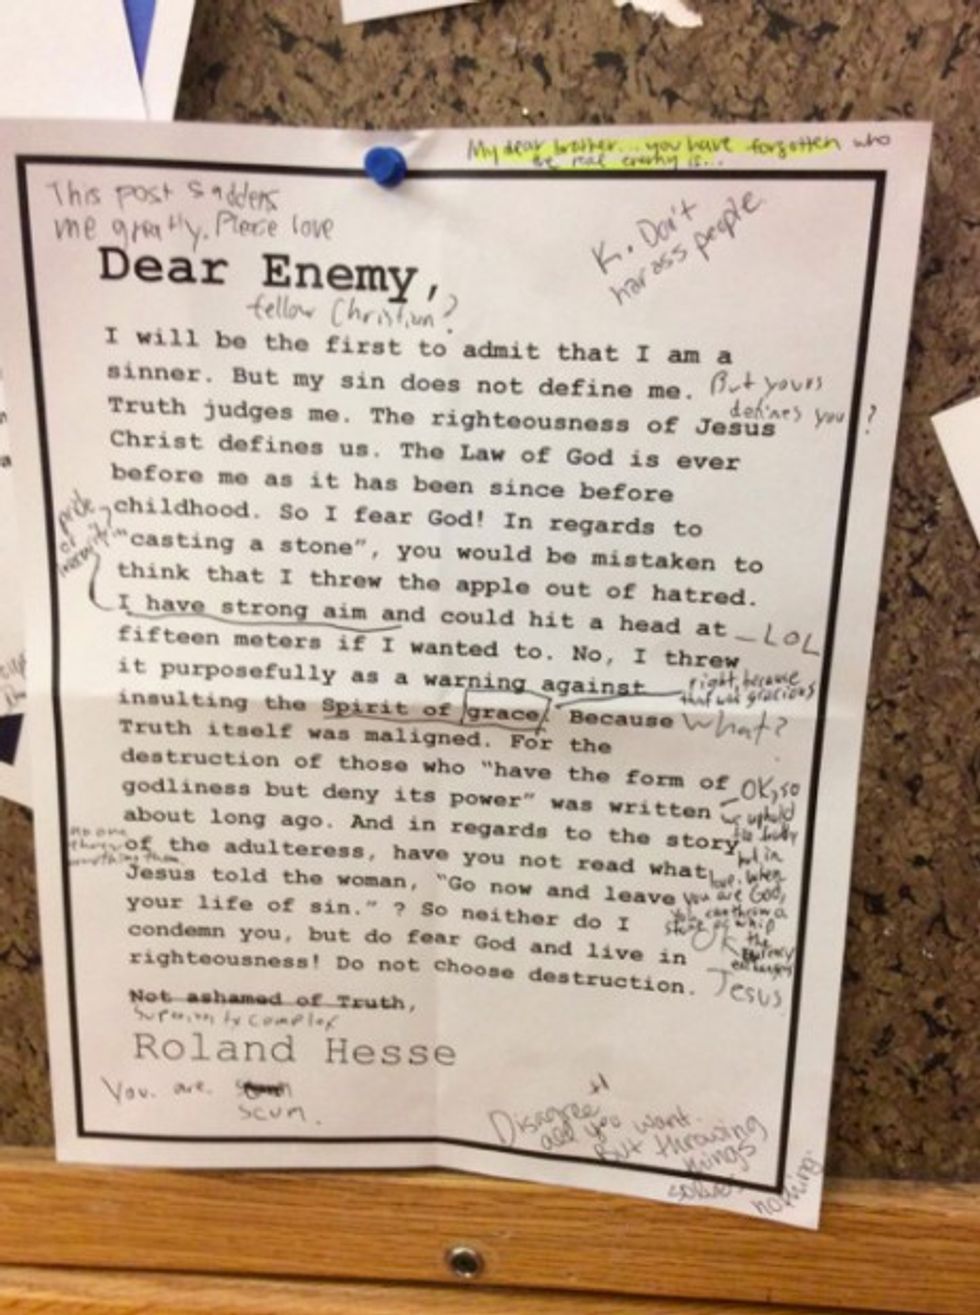 My dear brother... you have forgotten who
the real enemy is...
This post saddens
me greatly. Please love
K. Don't
harass people.
Dear Enemy,
fellow Christian?
I will be the first to admit that I am a
sinner. But my sin does not define me. But yours
defines you?
Truth judges me. The righteousness of Jesus
Christ defines us. The Law of God is ever
before me as it has been since before
childhood. So I fear God! In regards to
pride
or
"casting a stone", you would be mistaken to
think that I threw the apple out of hatred.
I have strong aim and could hit a head at - LOL
fifteen meters if I wanted to. No, I threw
it purposefully as a warning against right, because
that was gracious
insulting the Spirit of grace. Because What?
Truth itself was maligned. For the
destruction of those who "have the form of OK, so
godliness but deny its power" was written we uphold
about long ago. And in regards to the story
no one
threw
anything then.
of the adulteress, have you not read what
but in
love. When
Jesus told the woman, "Go now and leave you are God,
your life of sin." ? So neither do I you can throw a
condemn you, but do fear God and live in OK
righteousness! Do not choose destruction. Jesus
Not ashamed of Truth,
Superiority complex
Roland Hesse
You. are.
scum.
Disagree
all you want.
But throwing
things
solves
nothing.